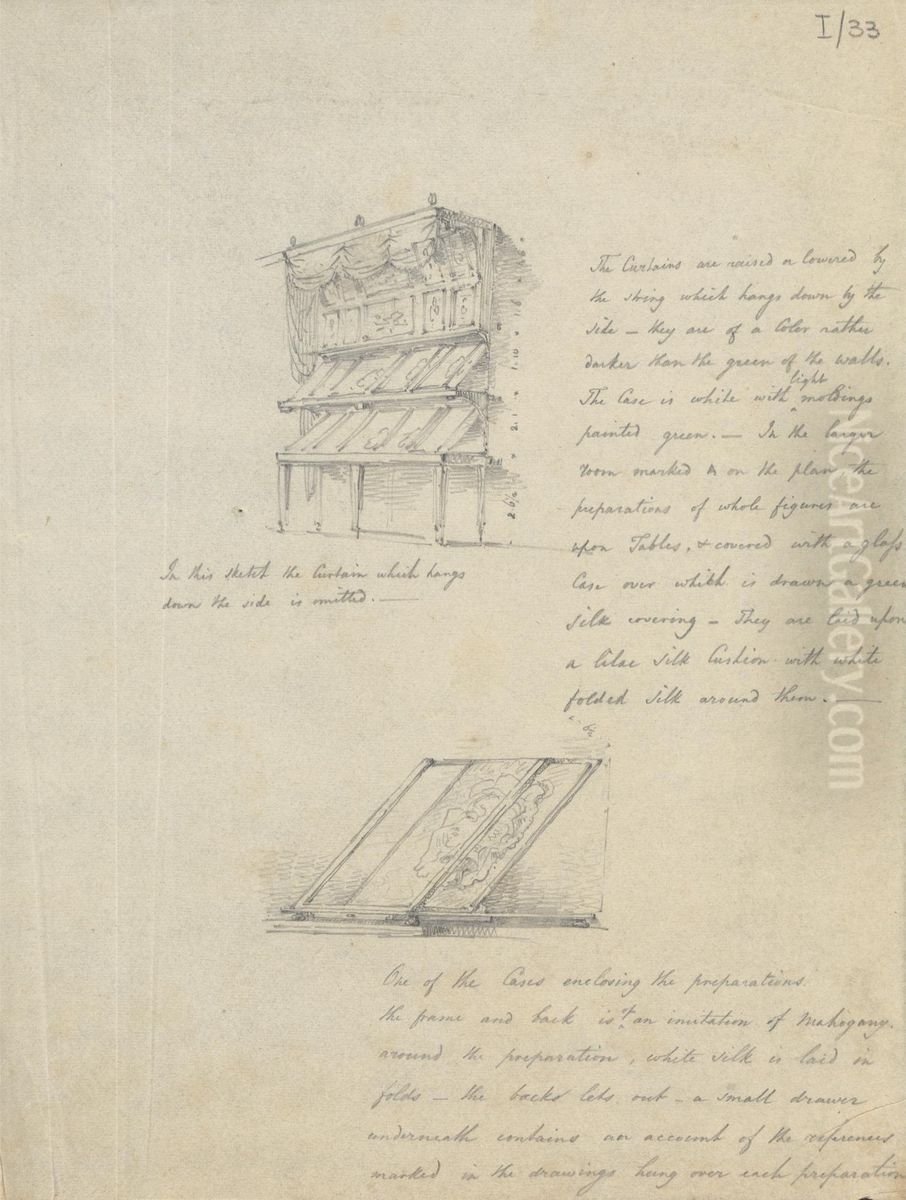 I/33
The Curtains are raised or lowered by
the string which hangs down by the
side — they are of a Color rather
darker than the green of the walls.
The Case is white with light moldings
painted green. — In the larger
room marked A on the plan, the
preparations of whole figures are
upon Tables, & covered with a glass
Case over which is drawn a green
silk covering — They are laid upon
a lilac silk Cushion with white
folded silk around them. —
1.10
2.1
2 6½
In this sketch the Curtain which hangs
down the side is omitted. —
One of the Cases enclosing the preparations.
the frame and back is of an imitation of Mahogany.
around the preparation, white silk is laid in
folds — the backs lets out — a small drawer
underneath contains an account of the references
marked in the drawings hung over each preparation
NiceArtGallery.com